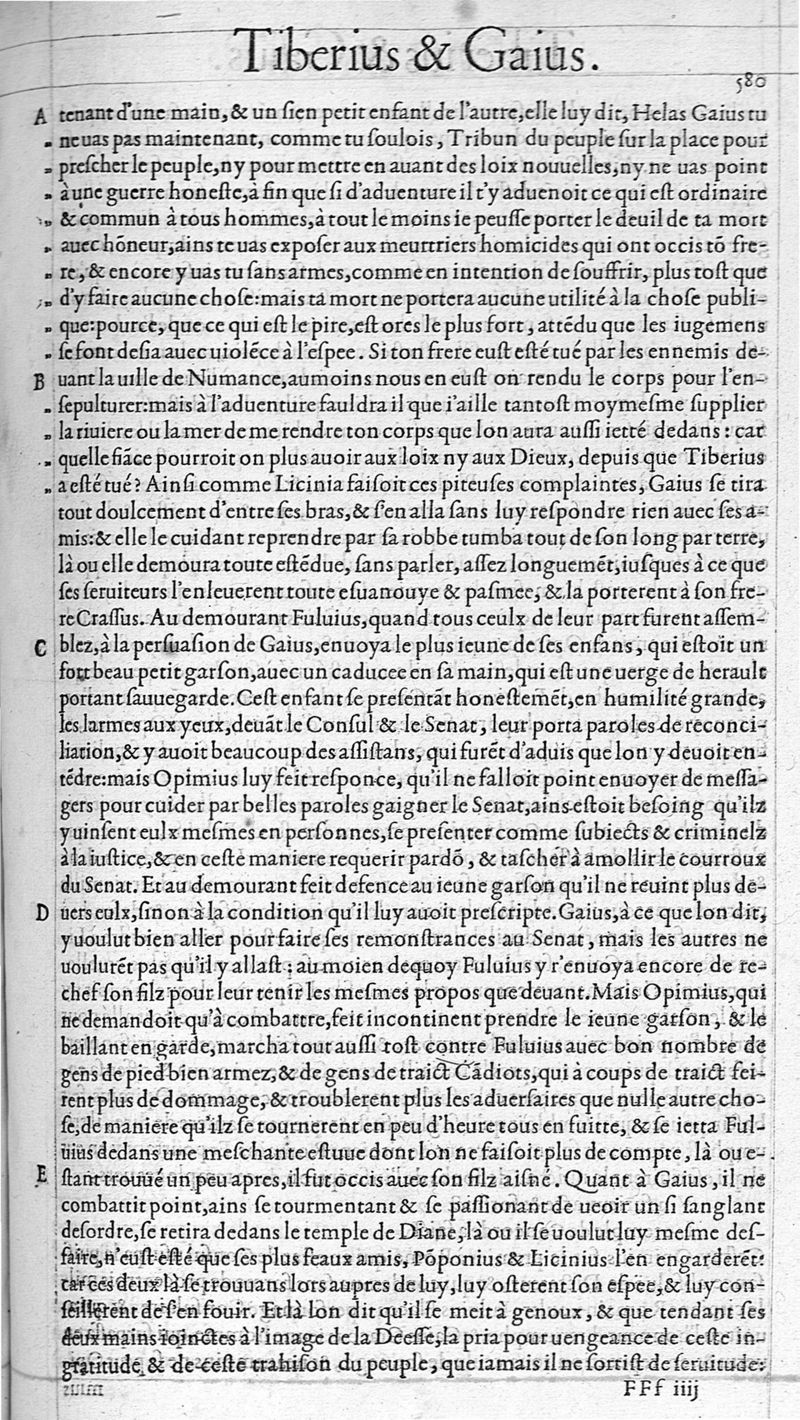 Tiberius & Gaius.
580
A tenant d'une main,& un ſien petit enfant de l'autre,elle luy dit, Helas Gaius tu
" ne uas pas maintenant, comme tu ſoulois, Tribun du peuple ſur la place pour
" preſcher le peuple,ny pour mettre en auant des loix nouuelles,ny ne uas point
" à une guerre honeſte,à fin que ſi d'aduenture il t'y aduenoit ce qui eſt ordinaire
" & commun à tous hommes,à tout le moins ie peuſſe porter le deuil de ta mort
" auec hōneur,ains te uas expoſer aux meurtriers homicides qui ont occis tō fre-
" re,& encore y uas tu ſans armes,comme en intention de ſouffrir, plus toſt que
" d'y faire aucune choſe:mais ta mort ne portera aucune utilité à la choſe publi-
" que:pource, que ce qui eſt le pire,eſt ores le plus fort, attēdu que les iugemens
" ſe font deſia auec uiolēce à l'eſpee. Si ton frere euſt eſté tué par les ennemis de-
B uant la uille de Numance,aumoins nous en euſt on rendu le corps pour l'en-
" ſepulturer:mais à l'aduenture fauldra il que i'aille tantoſt moymeſme ſupplier
" la riuiere ou la mer de me rendre ton corps que lon aura auſſi ietté dedans: car
" quelle fiāce pourroit on plus auoir aux loix ny aux Dieux, depuis que Tiberius
" a eſté tué? Ainſi comme Licinia faiſoit ces piteuſes complaintes, Gaius ſe tira
tout doulcement d'entre ſes bras,& ſ'en alla ſans luy reſpondre rien auec ſes a-
mis:& elle le cuidant reprendre par ſa robbe tumba tout de ſon long par terre,
là ou elle demoura toute eſtēdue, ſans parler, aſſez longuemēt,iuſques à ce que
ſes ſeruiteurs l'enleuerent toute eſuanouye & paſmee, & la porterent à ſon fre-
re Craſſus. Au demourant Fuluius,quand tous ceulx de leur part furent aſſem-
C blez,à la perſuaſion de Gaius,enuoya le plus ieune de ſes enfans, qui eſtoit un
fort beau petit garſon,auec un caducee en ſa main,qui eſt une uerge de herault
portant ſauuegarde.Ceſt enfant ſe preſentāt honeſtemēt,en humilité grande,
les larmes aux yeux,deuāt le Conſul & le Senat, leur porta paroles de reconci-
liation,& y auoit beaucoup des aſſiſtans, qui furēt d'aduis que lon y deuoit en-
tēdre:mais Opimius luy feit reſponce, qu'il ne falloit point enuoyer de meſſa-
gers pour cuider par belles paroles gaigner le Senat,ains eſtoit beſoing qu'ilz
y uinſent eulx meſmes en perſonnes,ſe preſenter comme ſubiects & criminelz
à la iuſtice,& en ceſte maniere requerir pardō, & taſcher à amollir le courroux
du Senat. Et au demourant feit defence au ieune garſon qu'il ne reuint plus de-
D uers eulx,ſinon à la condition qu'il luy auoit preſcripte.Gaius,à ce que lon dit,
y uoulut bien aller pour faire ſes remonſtrances au Senat, mais les autres ne
uoulurēt pas qu'il y allaſt : au moien dequoy Fuluius y r'enuoya encore de re-
chef ſon filz pour leur tenir les meſmes propos que deuant.Mais Opimius,qui
ne demandoit qu'à combattre,feit incontinent prendre le ieune garſon, & le
baillant en garde,marcha tout auſſi toſt contre Fuluius auec bon nombre de
gens de pied bien armez,& de gens de traict Cādiots,qui à coups de traict fei-
rent plus de dommage,& troublerent plus les aduerſaires que nulle autre cho-
ſe,de maniere qu'ilz ſe tournerent en peu d'heure tous en fuitte, & ſe ietta Ful-
uius dedans une meſchante eſtuue dont lon ne faiſoit plus de compte, là ou e-
E ſtant trouué un peu apres,il fut occis auec ſon filz aiſné. Quant à Gaius, il ne
combattit point,ains ſe tourmentant & ſe paſſionant de ueoir un ſi ſanglant
deſordre,ſe retira dedans le temple de Diane, là ou il ſe uoulut luy meſme deſ-
faire,n'euſt eſté que ſes plus feaux amis, Pōponius & Licinius l'en engarderēt:
car ces deux là ſe trouuans lors aupres de luy,luy oſterent ſon eſpee,& luy con-
ſeillerent de ſ'en fouir. Et là lon dit qu'il ſe meit à genoux, & que tendant ſes
deux mains ioinctes à l'image de la Deeſſe,la pria pour uengeance de ceſte in-
gratitude & de ceſte trahiſon du peuple, que iamais il ne ſortiſt de ſeruitude:
FFf iiij